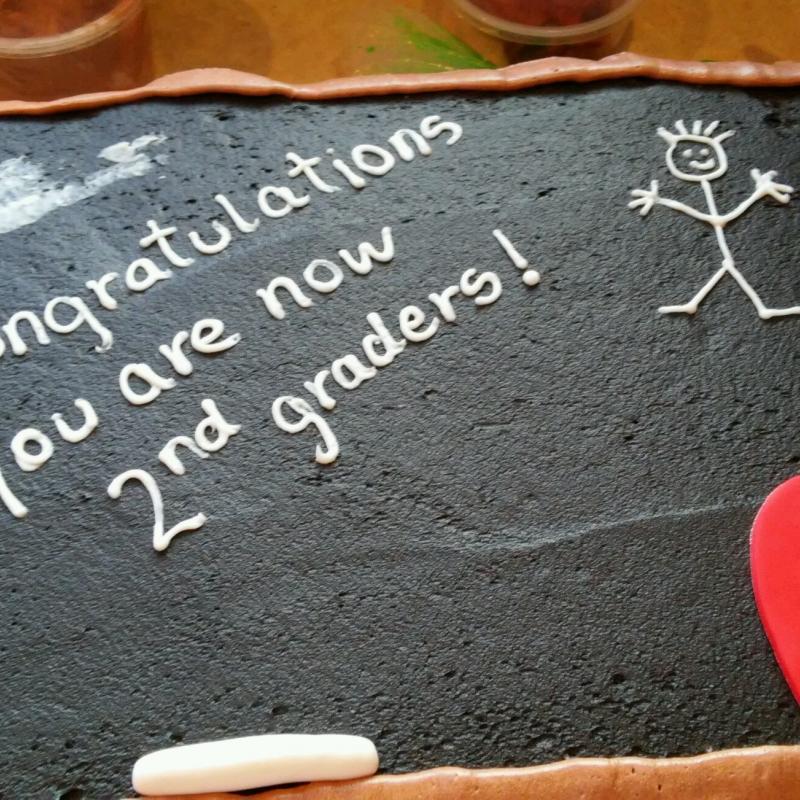 ongratulations
you are now
2nd graders!